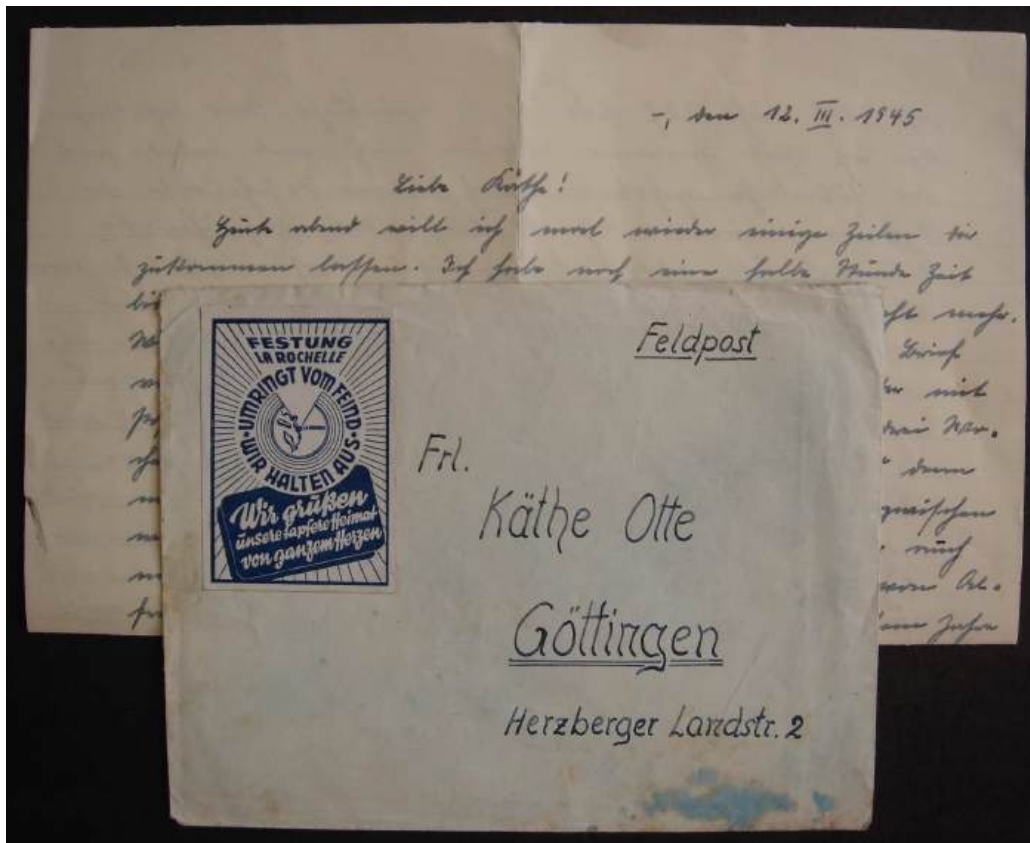 -, den 12. III. 1945
Liebe Käthe!
Heute abend will ich mal wieder einige Zeilen dir
zukommen lassen. Ich habe noch eine halbe Stunde Zeit
mehr.
Brief
mit
drei
denn
inzwischen
auch
Jahre
FESTUNG
LA ROCHELLE
UMRINGT VOM FEIND
WIR HALTEN AUS
Wir grüßen
unsere tapfere Heimat
von ganzem Herzen
Feldpost
Frl.
Käthe Otte
Göttingen
Herzberger Landstr. 2